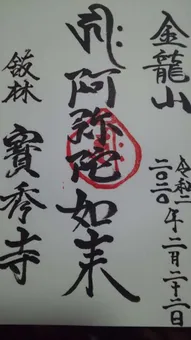 金龍山
令和二
二〇二〇年二月二十二日
阿弥陀如来
飯林
寶秀寺